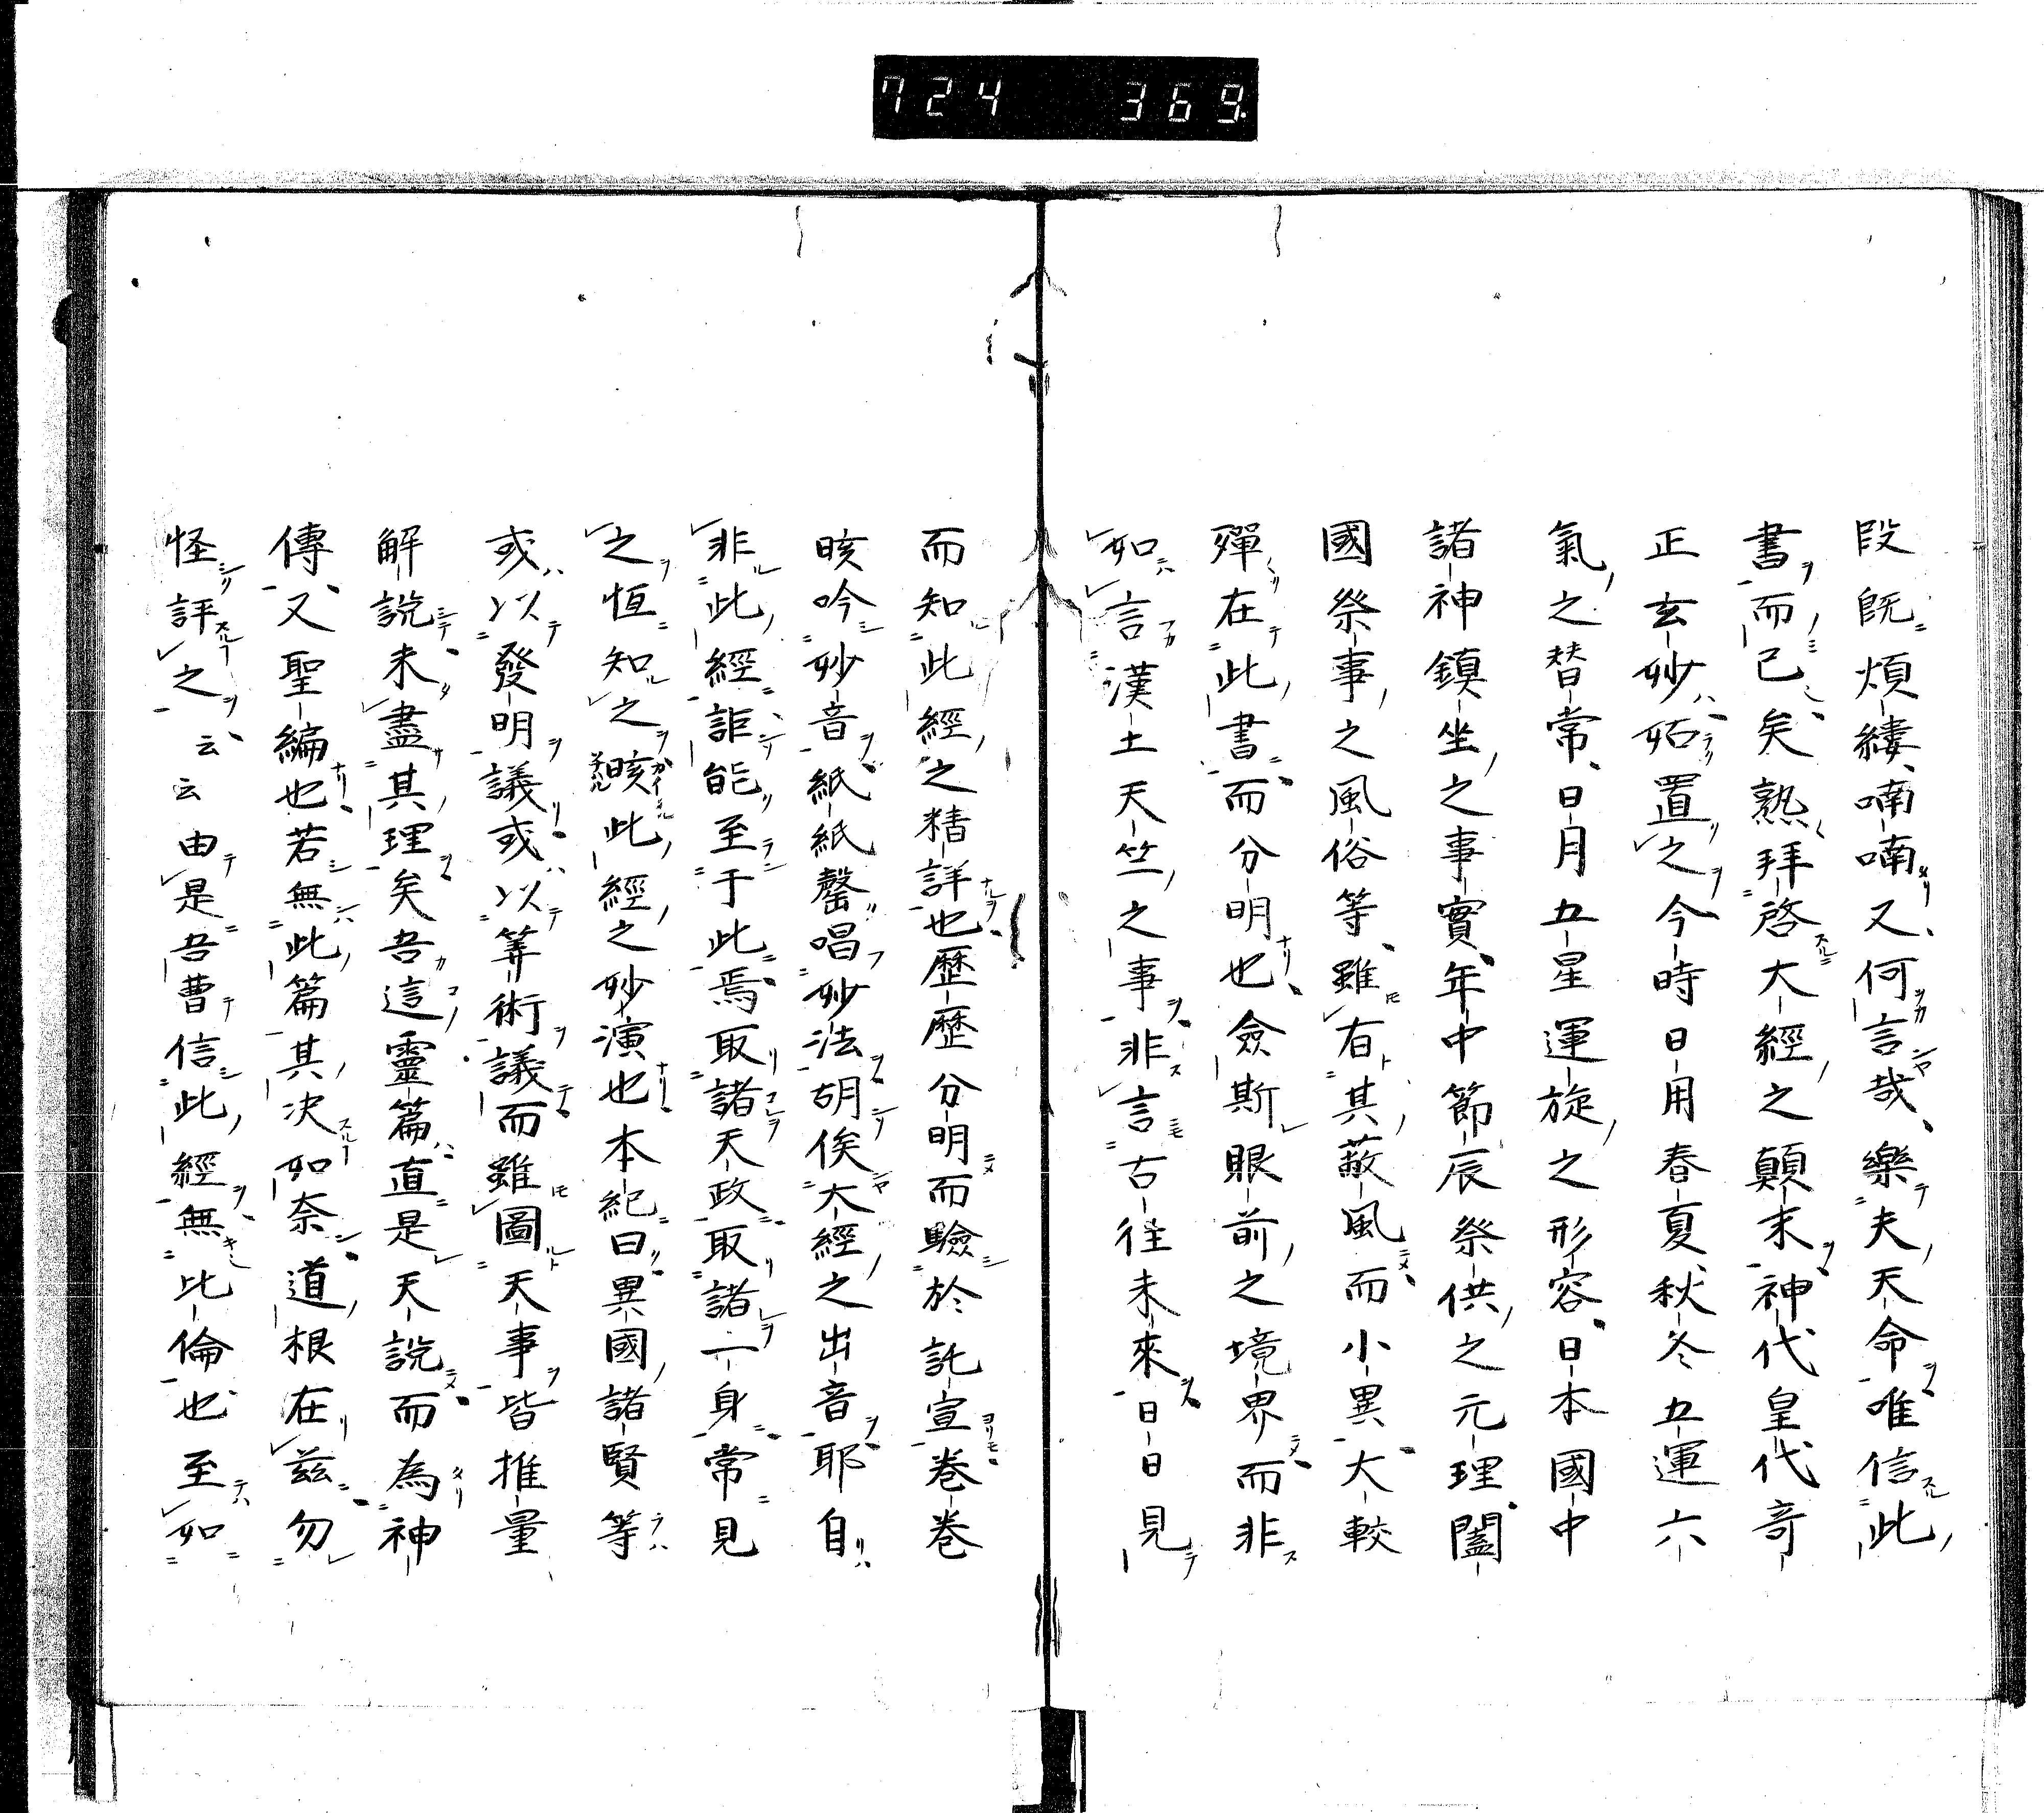 724 369
段既煩縷喃喃又何言哉樂夫天命唯信此
書而已矣熟拜啓大經之顛末神代皇代奇
正玄妙姑置之今時日用春夏秋冬五運六
氣之替常日月五星運旋之形容日本國中
諸神鎮坐之事實年中節辰祭供之元理闔
國祭事之風俗等雖有其蔽風而小異大較
殫在此書而分明也僉斯眼前之境界而非
如言漢土天竺之事非言古往未來日日見
而知此經之精詳也歷歷分明而驗於託宣巻巻
咳吟妙音紙紙罄唱妙法胡俟大經之出音耶自
非此經詎能至于此焉取諸天政取諸一身常見
之恒知之咳此經之妙演也本紀曰異國諸賢等
或以發明議或以筭術議而雖圖天事皆推量
解說未盡其理矣吾這靈篇直是天說而為神
傳又聖編也若無此篇其决如奈道根在茲勿
怪評之云云由是吾曹信此經無比倫也至如